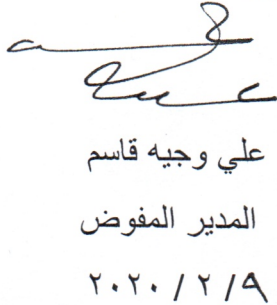 علي وجيه قاسم
المدير المفوض
٢٠٢٠ / ٢ /٩